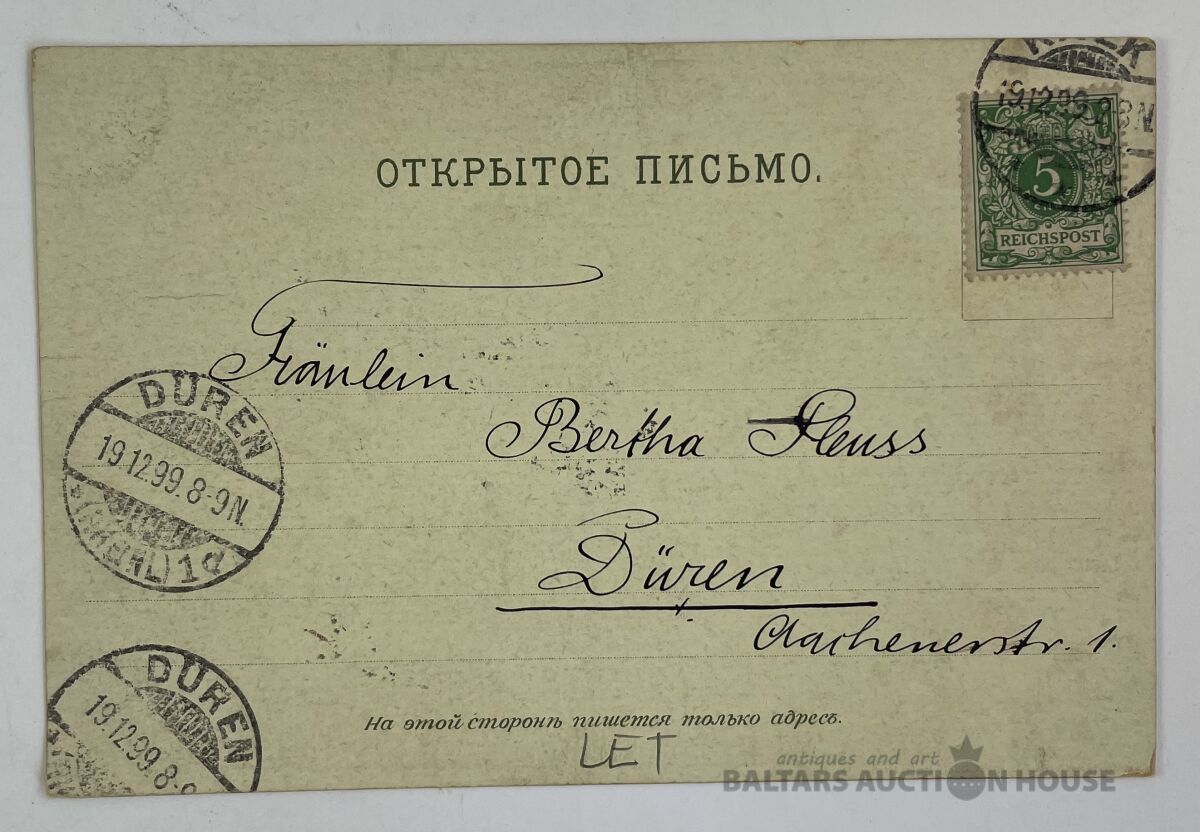 19.12.99
ОТКРЫТОЕ ПИСЬМО.
5
REICHSPOST
Fräulein
Bertha
Düren
Aachenerstr. 1.
DÜREN
19.12.99.8-9N.
(RHEINL) 1d
DÜREN
19.12.99.8-9
На этой сторонѣ пишется только адресъ.
LET
antiques and art
BALTARS AUCTION HOUSE